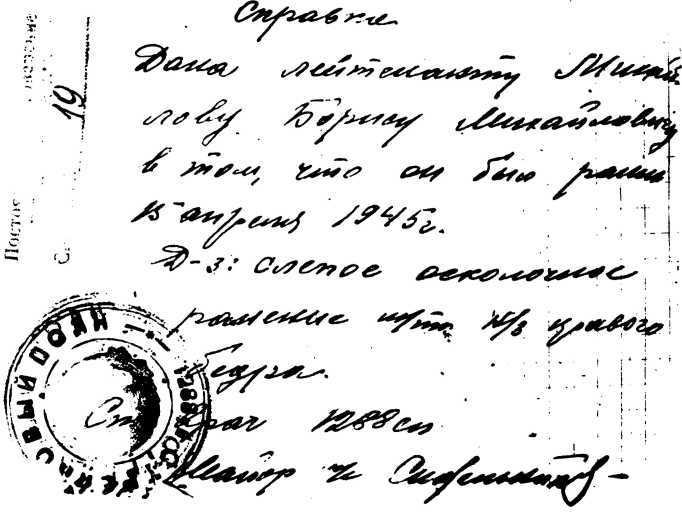 Справка
Дана лейтенанту Михай
лову Борису Михайловичу
в том, что он был ранен
15 апреля 1945г.
Д-з: слепое осколочное
ранение м/тк. н/з правого
бедра.
Ст. врач 1288 сп
Майор
19